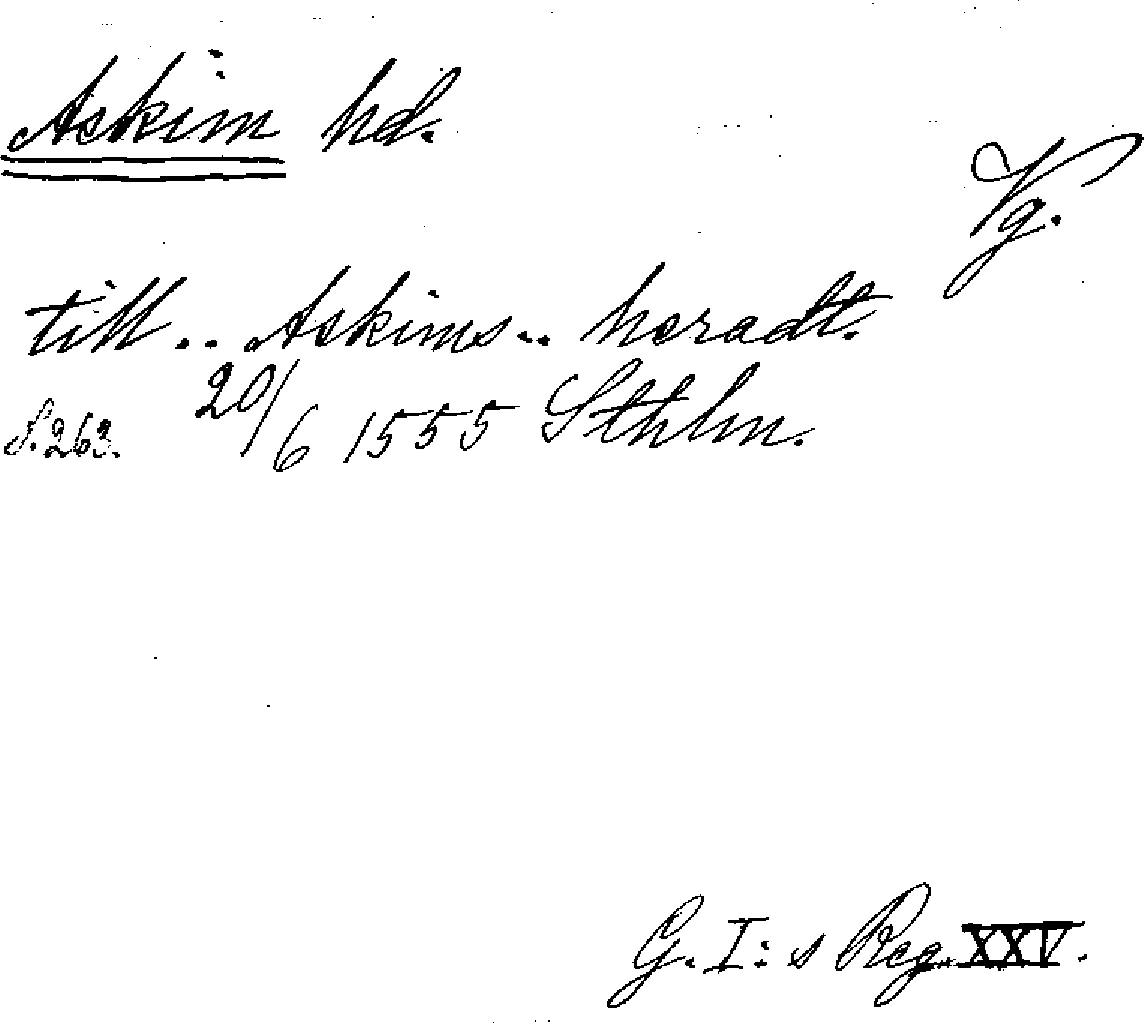 Askim hd.
Vg.
till .. Askims .. heradt.
S. 263. 20/6 1555 Sthlm.
G. I:s Reg. XXV.